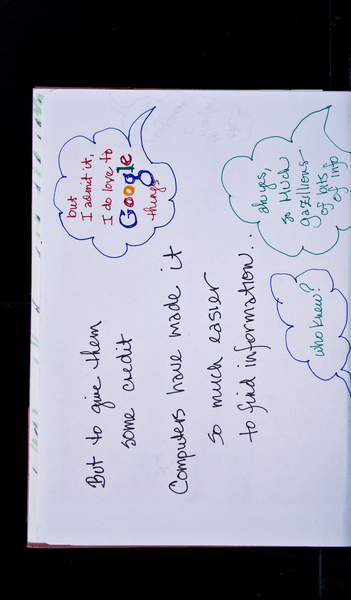 But to give them
some credit
Computers have made it
so much easier
to find information...
but
I admit it,
I do love to
Google
things
ah yes,
so much
gazillions
of bits
of info
who knew?